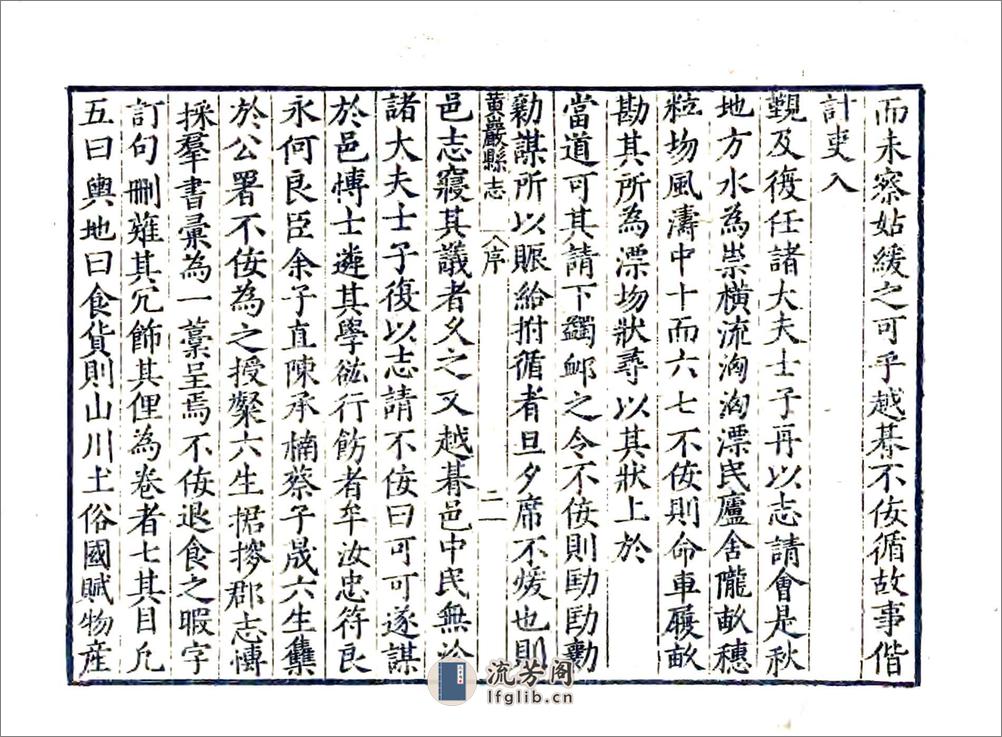 而未察姑緩之可乎越朞不佞循故事偕
計吏入
覲及復任諸大夫士子再以志請會是秋
地方水為祟橫流洶洶漂民廬舍隴畝穗
粒圽風濤中十而六七不佞則命車履畝
勘其所為漂圽狀尋以其狀上於
當道可其請下蠲䘏之令不佞則劻劻勷
勷謀所以賑給拊循者旦夕席不煖也則
黃巖縣志 序 二
邑志寢其議者久之又越朞邑中民無沴
諸大夫士子復以志請不佞曰可可遂謀
於邑博士遴其學鉱行飭者牟汝忠符良
永何良臣余子直陳承楠蔡子晟六生集
於公署不佞為之授粲六生捃摭郡志愽
採羣書彙為一藁呈焉不佞退食之暇字
訂句刪薙其冗飾其俚為卷者七其目凢
五曰輿地曰食貨則山川土俗國賦物産
流芳阁
lfglib.cn